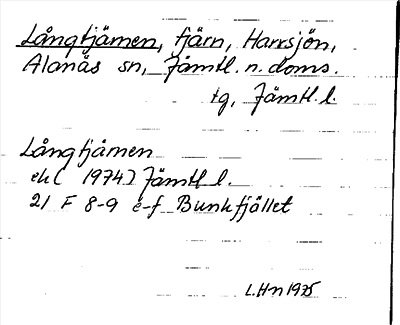 Långtjärnen, tjärn, Harrsjön,
Alanäs sn, Jämtl. n. doms.
tg, Jämtl. l.
Långtjärnen
ek ( 1974) Jämtl l.
21 F 8-9 e-f Bunkfjället
L.Hn 1975